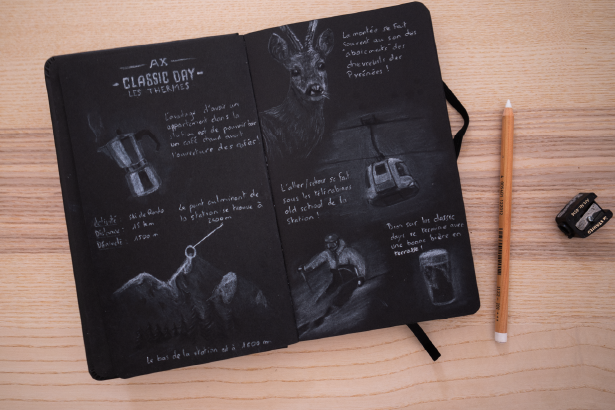 AX
CLASSIC DAY
LES THERMES
d'avoir un
appartement dans la
station est de pouvoir
un café chaud avant
l'ouverture des
Activité : Ski de Rando
Distance : 15 km
Dénivelé : 1500 m
Le point culminant de
la station se trouve à
2400 m
Le bas de la station est à
La montée se fait
souvent au son des
"aboiements" des
chevreuils des
Pyrénées !
L'aller/retour se fait
sous les télécabines
old school de la
station !
Bien sûr les classic
days se termine avec
une bonne bière en
terrasse !